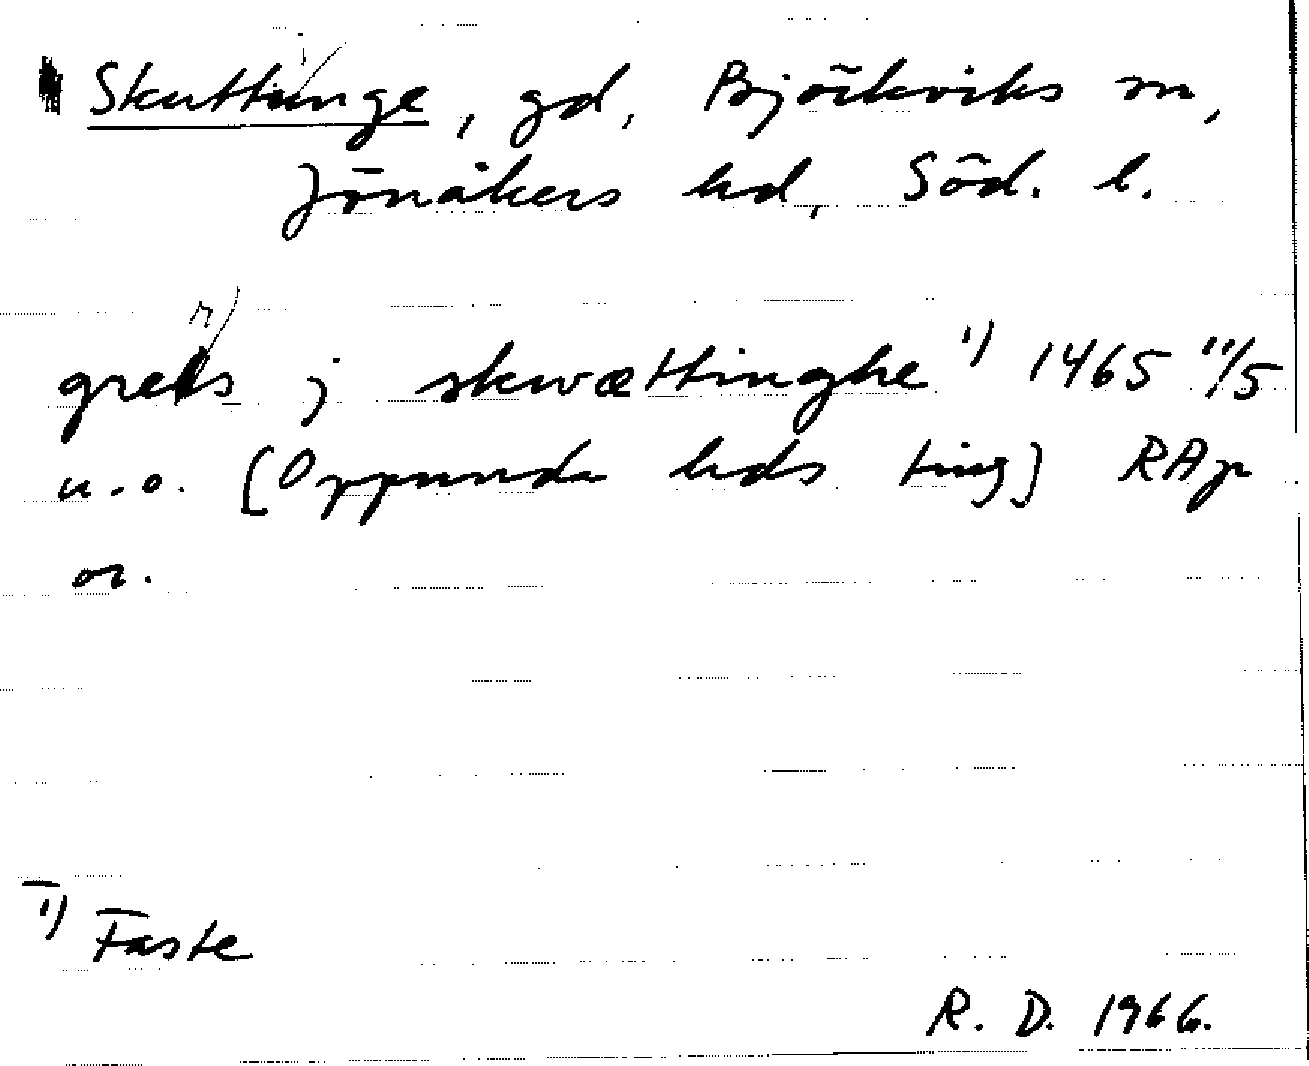 Skuttunge, gd, Björkviks sn,
Jönåkers hd, Söd. l.
j skwættinghe 1) 1465 11/5
u.o. [Oppunda hds ting] RAp
or.
1) Faste
R. D. 1966.